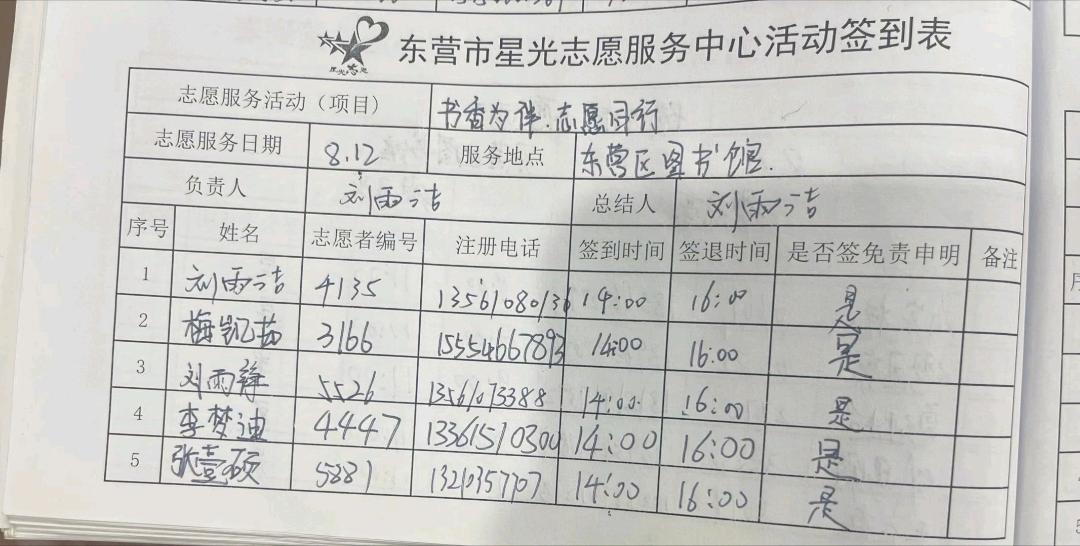 星光志愿
东营市星光志愿服务中心活动签到表
志愿服务活动（项目） 书香为伴.志愿同行
志愿服务日期 8.12 服务地点 东营区图书馆.
负责人 刘雨洁 总结人 刘雨洁
序号 姓名 志愿者编号 注册电话 签到时间 签退时间 是否签免责申明 备注
1 刘雨洁 4135 13561080136 14:00 16:00 是
2 梅凯茹 3166 15554667893 14:00 16:00 是
3 刘雨 5526 13561073388 14:00 16:00 是
4 李梦迪 4447 13361510300 14:00 16:00 是
5 张壹硕 5881 13210357707 14:00 16:00 是